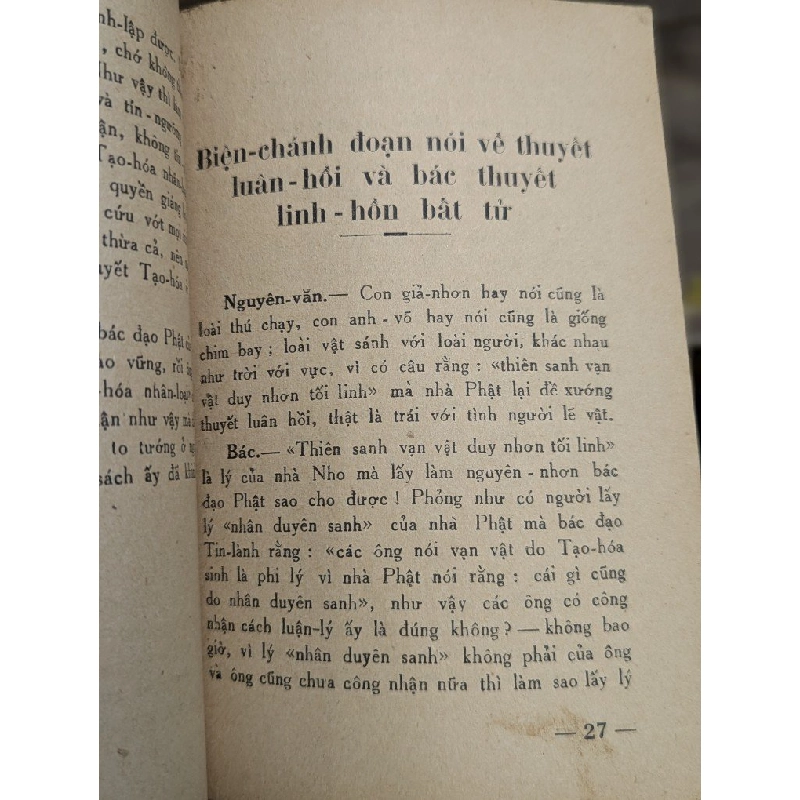 nh-lập được,
, chớ không
Như vậy thì
và tín-ngưỡng
ận, không
Tạo-hóa nhân
quyền giáng
cứu vớt mọi
thừa cả, nên
uyết Tạo-hóa
bác đạo Phật
ao vững, rồi
-hóa nhân-loại
ận như vậy mà
to tướng ở
sách ấy đã
Biện-chánh đoạn nói về thuyết
luân-hồi và bác thuyết
linh-hồn bất tử
Nguyên-văn.— Con giả-nhơn hay nói cũng là
loài thú chạy, con anh-võ hay nói cũng là giống
chim bay ; loài vật sánh với loài người, khác nhau
như trời với vực, vì có câu rằng : «thiên sanh vạn
vật duy nhơn tối linh» mà nhà Phật lại đề xướng
thuyết luân hồi, thật là trái với tình người lẽ vật.
Bác.— «Thiên sanh vạn vật duy nhơn tối linh»
là lý của nhà Nho mà lấy làm nguyên-nhơn bác
đạo Phật sao cho được ! Phỏng như có người lấy
lý «nhân duyên sanh» của nhà Phật mà bác đạo
Tin-lành rằng : «các ông nói vạn vật do Tạo-hóa
sinh là phi lý vì nhà Phật nói rằng : cái gì cũng
do nhân duyên sanh», như vậy các ông có công
nhận cách luận-lý ấy là đúng không ? — không bao
giờ, vì lý «nhân duyên sanh» không phải của ông
và ông cũng chưa công nhận nữa thì làm sao lấy lý
— 27 —